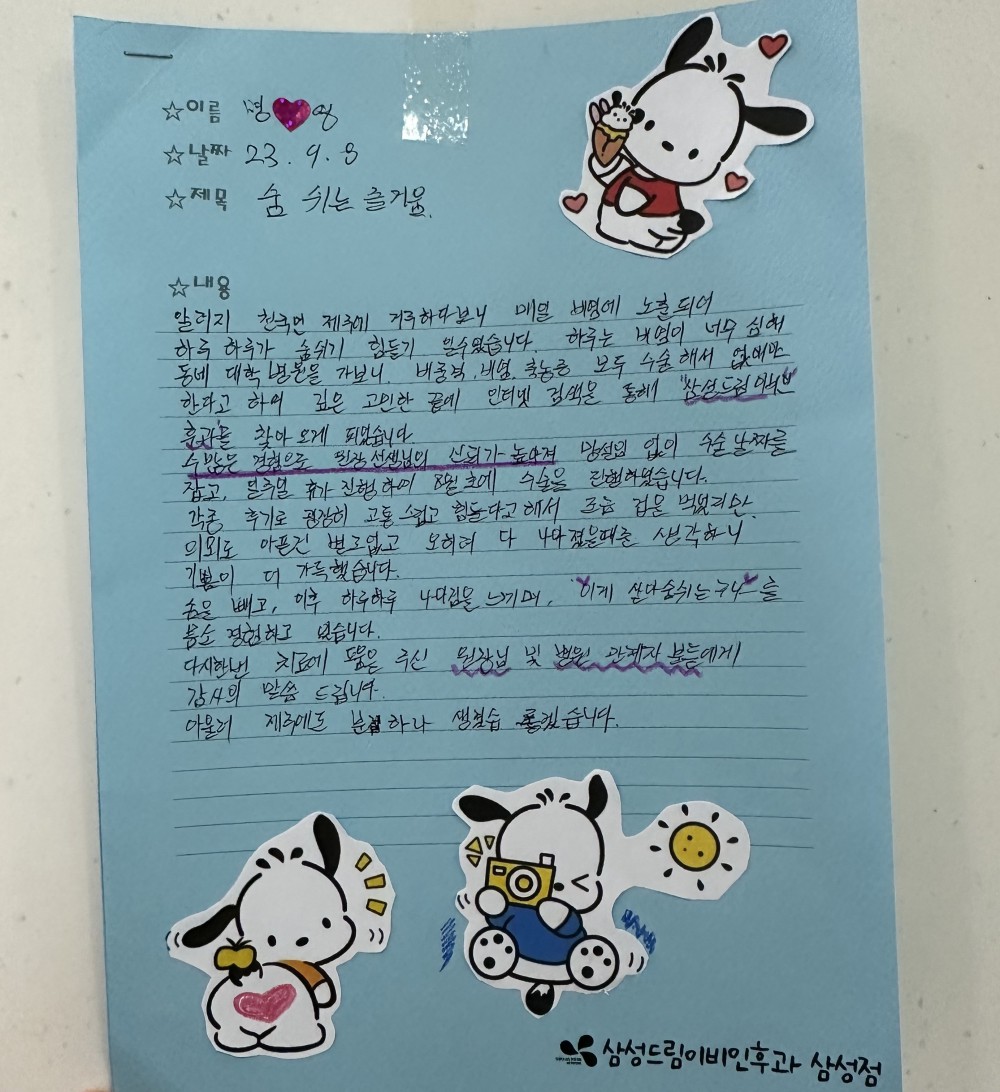 ☆이름 명♥용
☆날짜 23. 9. 8
☆제목 숨 쉬는 즐거움.
☆내용
알러지 천국인 제주에 거주하다보니 매일 비염에 노출되어
하루 하루가 숨쉬기 힘들기 일수였습니다. 하루는 비염이 너무 심해
동네 대학병원을 가보니, 비중격, 비염, 축농증 모두 수술해서 없애야만
한다고 하여 깊은 고민한 끝에 인터넷 검색을 통해 "삼성드림이비인
후과"를 찾아오게 되었습니다.
수많은 경험으로 원장선생님의 신뢰가 높아져 망설임 없이 수술날짜를
잡고, 일주일 휴가 진행하여 8월초에 수술을 진행하였습니다.
각종 후기로 굉장히 고통스럽고 힘들다고해서 조금 겁을 먹었지만,
의외로 아픈건 별로없고 오히려 다 나아졌을때를 생각하니
기쁨이 더 가득했습니다.
솜을 빼고, 이후 하루하루 나아짐을 느끼며, "이게 산다숨쉬는구나"를
몸소 경험하고 있습니다.
다시한번 치료에 도움을 주신 원장님 및 병원 관계자 분들에게
감사의 말씀 드립니다.
아울러 제주에도 하나 생겼습 좋겠습니다.
삼성드림이비인후과 삼성점